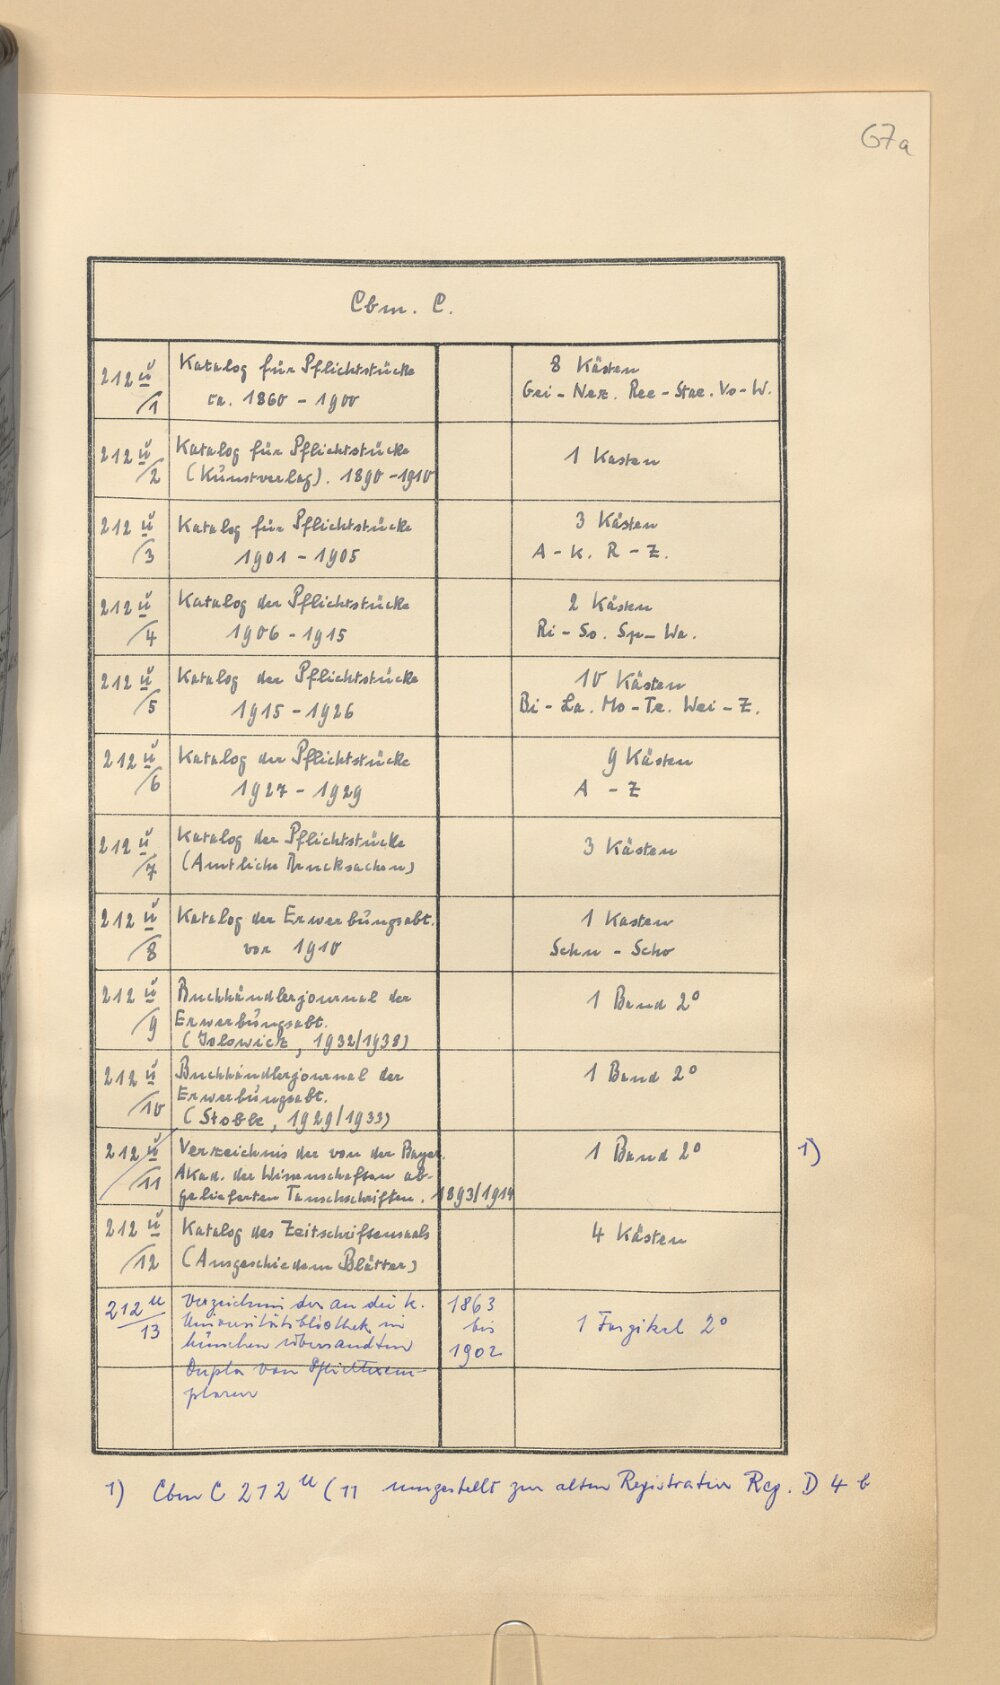 67a
Cbm. C.
212 ü Katalog für Pflichtstücke 8 Kästen
/1 ca. 1860 - 1900 Gei - Nez. Ree - Stae. Vo - W.
212 ü Katalog für Pflichtstücke 1 Kasten
/2 (Kunstverlag). 1890 - 1910
212 ü Katalog für Pflichtstücke 3 Kästen
/3 1901 - 1905 A - K. R - Z.
212 ü Katalog der Pflichtstücke 2 Kästen
/4 1906 - 1915 Ri - So. Sp - We.
212 ü Katalog der Pflichtstücke 10 Kästen
/5 1915 - 1926 Bi - La. Mo - Te. Wei - Z.
212 ü Katalog der Pflichtstücke 9 Kästen
/6 1927 - 1929 A - Z
212 ü Katalog der Pflichtstücke 3 Kästen
/7 (Amtliche Drucksachen)
212 ü Katalog der Erwerbungsabt. 1 Kasten
/8 vor 1910 Schu - Scho
212 ü Buchhändlerjournal der 1 Band 2°
/9 Erwerbungsabt.
(Golowicz, 1932/1938)
212 ü Buchhändlerjournal der 1 Band 2°
/10 Erwerbungsabt.
(Stobbe, 1929/1933)
212 ü Verzeichnis der von der Bayer. 1 Band 2° 1)
/11 Akad. der Wissenschaften ab-
gelieferten Tauschschriften. 1893/1914
212 ü Katalog des Zeitschriftensaals 4 Kästen
/12 (Ausgeschiedene Blätter)
212 u Verzeichnis der an die k. 1863
/13 Universitätsbibliothek in bis 1 Faszikel 2°
München übersandten 1902
Dupla von Pflichtexem-
plaren
1) Cbm C 212 u (11 umgestellt zur alten Registratur Reg. D 4 b